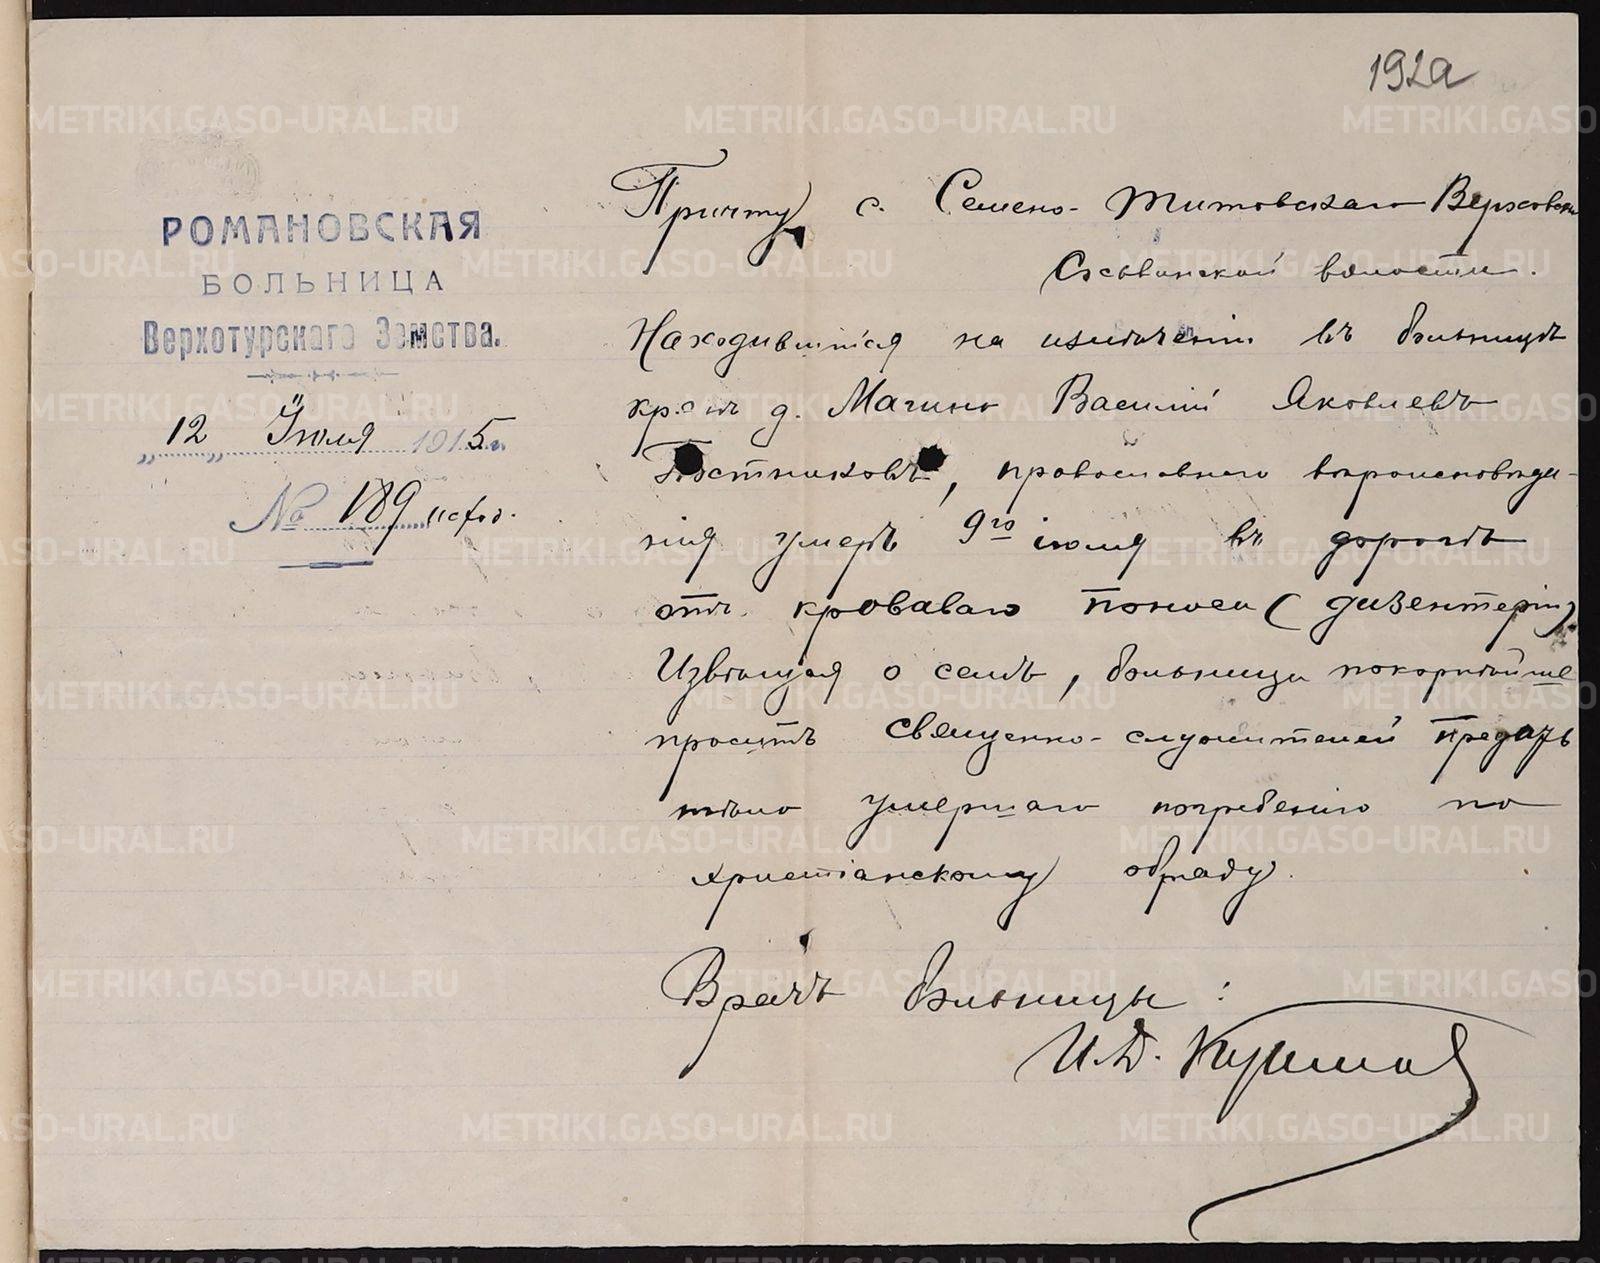 192а
РОМАНОВСКАЯ
БОЛЬНИЦА
Верхотурскаго Земства.
„12„ Іюля 1915 г.
№ 189 исход.
Причту с. Семено-Титовскаго
Сосьвинской волости.
Находившійся на излѣченіи въ больницѣ
кр-нъ д. Масино Василій Яковлевъ
Постниковъ, православнаго вѣроисповѣда-
нія умеръ 9го іюля въ дорогѣ
отъ кроваваго поноса (дизентеріи)
Извѣщая о семъ, больница покорнѣйше
проситъ священно-служителей предать
тѣло умершаго погребенію по
христіанскому обряду.
Врачъ больницы:
И. Д.
METRIKI.GASO-URAL.RU